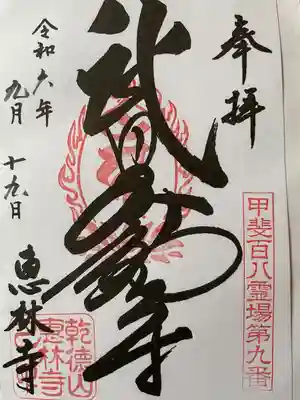 奉拝
甲斐百八霊場第九番
武田不動尊
令和六年
九月十九日
恵林寺
乾徳山
恵林寺